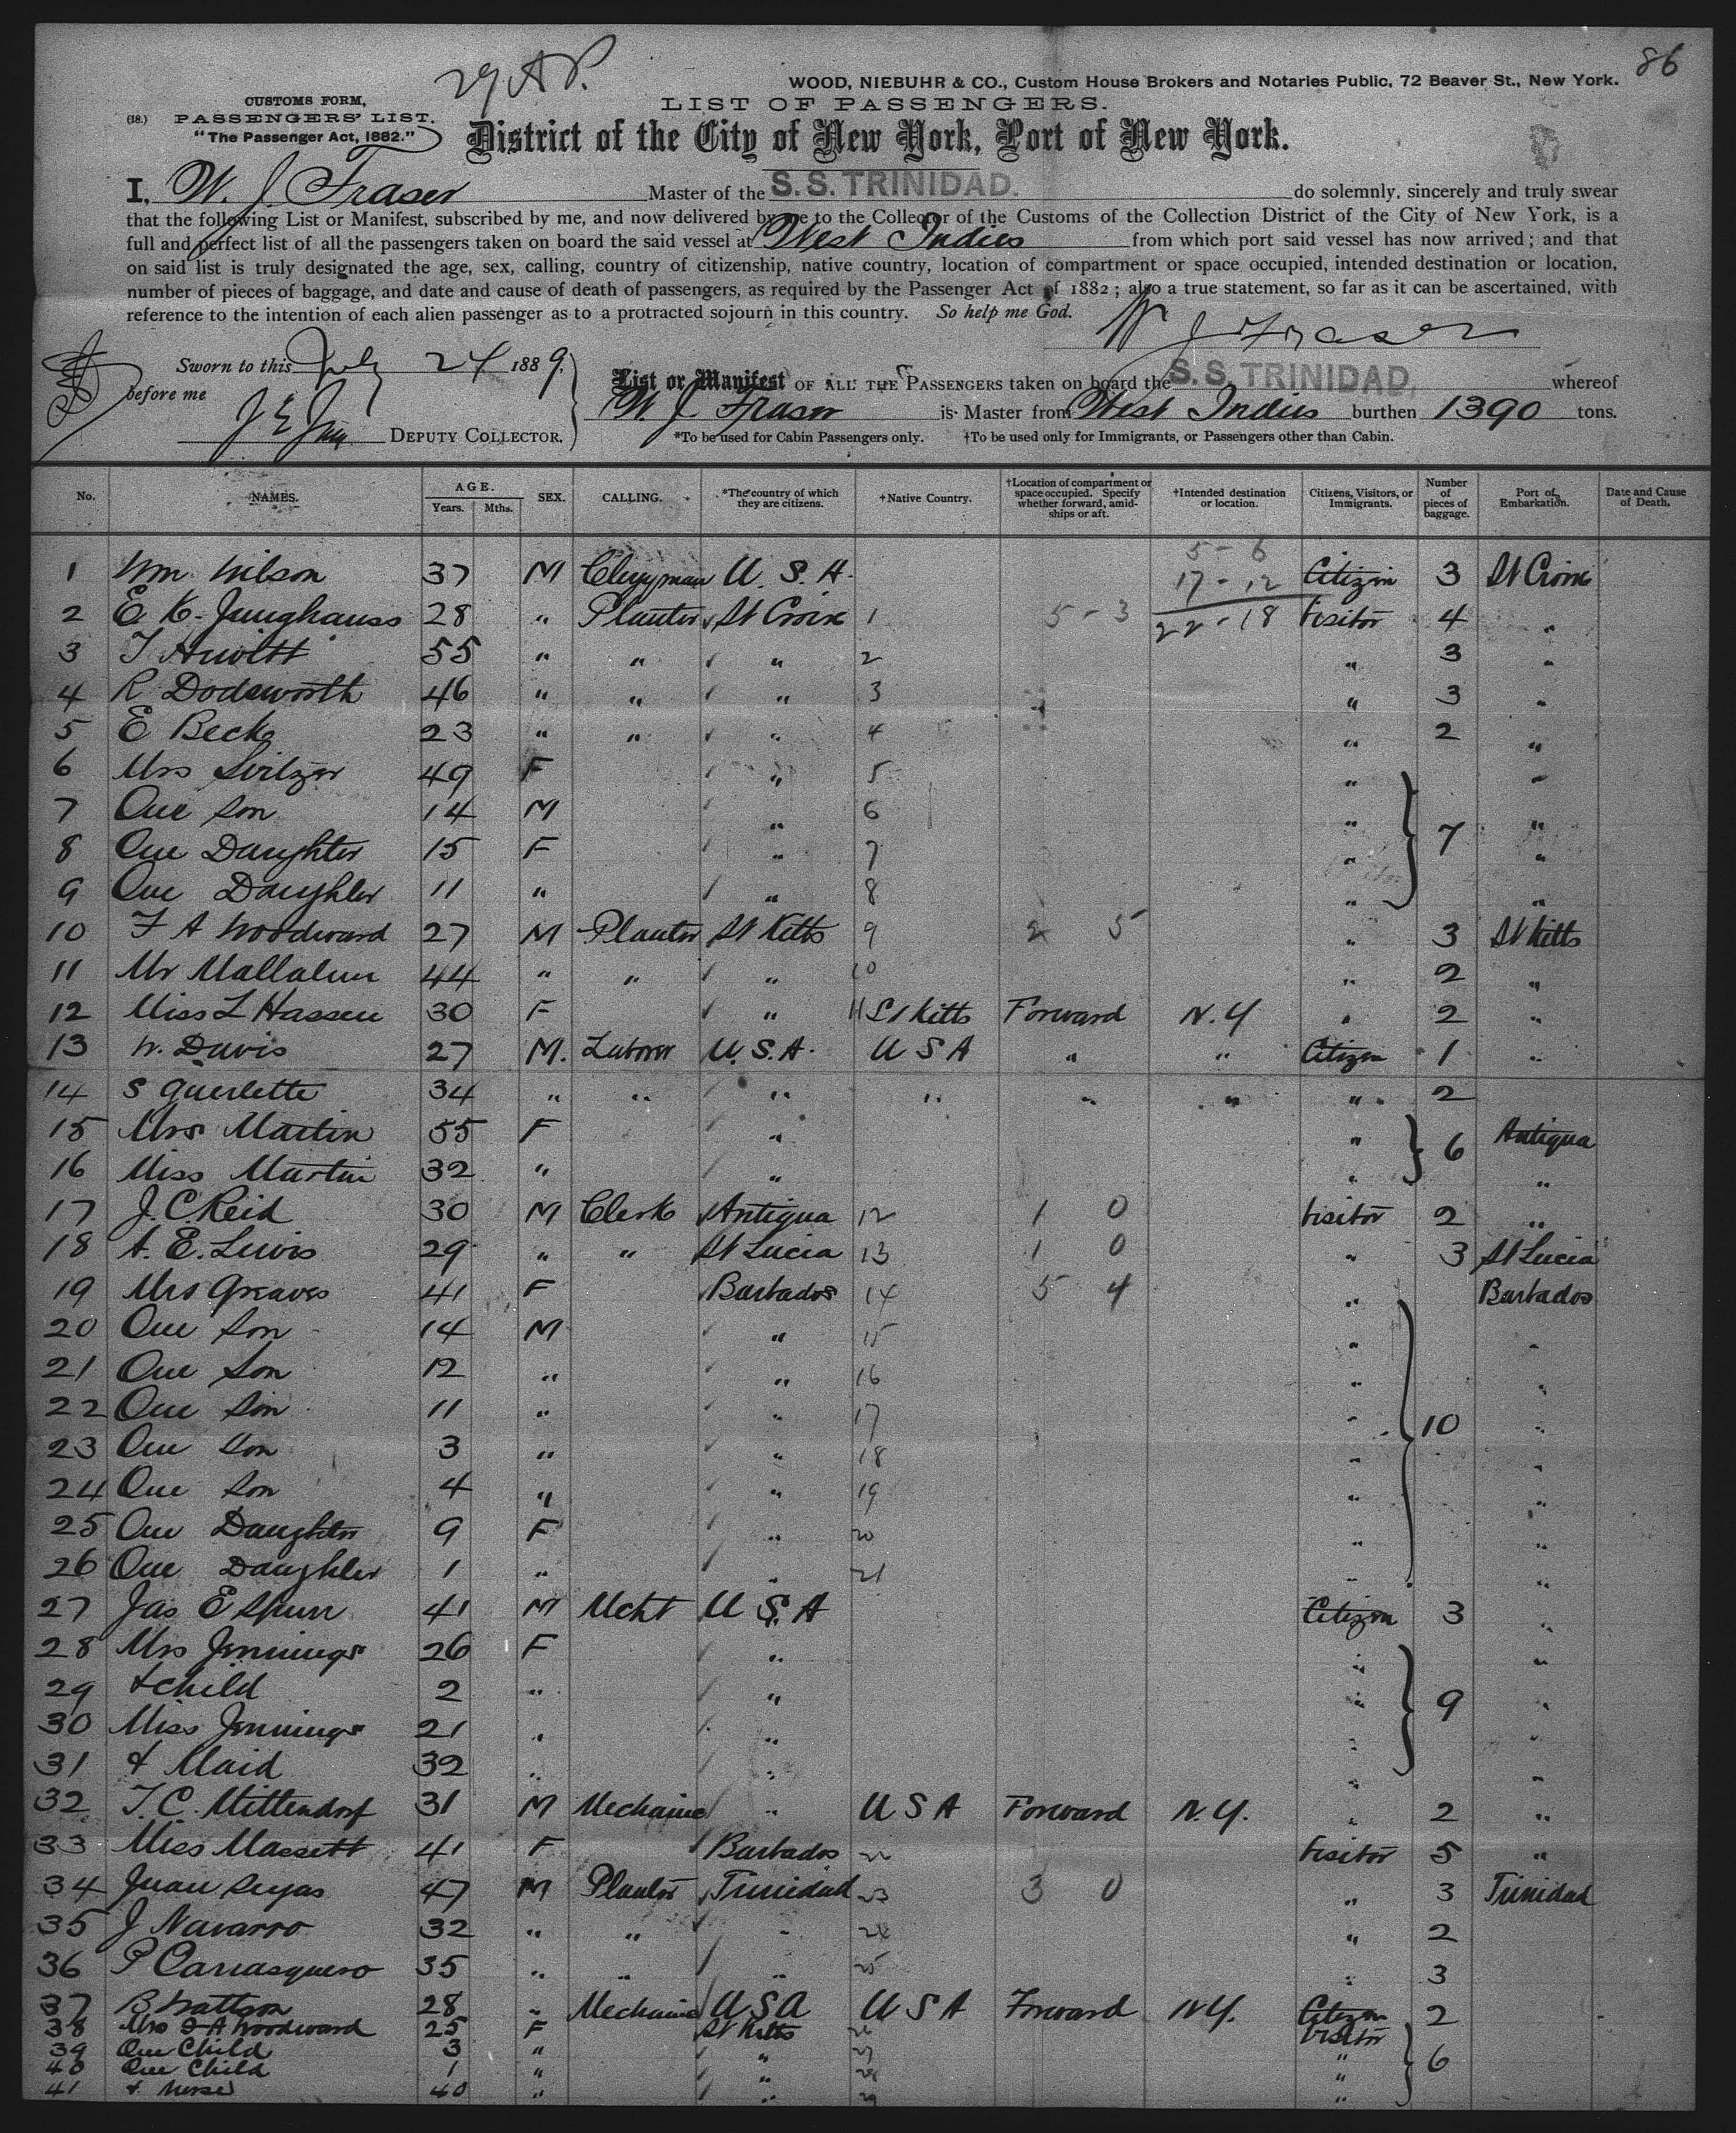 86
29 A P.
WOOD, NIEBUHR & CO., Custom House Brokers and Notaries Public, 72 Beaver St., New York.
CUSTOMS FORM,
(18.) PASSENGERS' LIST.
"The Passenger Act, 1882."
LIST OF PASSENGERS.
District of the City of New York, Port of New York.
I, W. J. Fraser Master of the S.S. TRINIDAD. do solemnly, sincerely and truly swear
that the following List or Manifest, subscribed by me, and now delivered by me to the Collector of the Customs of the Collection District of the City of New York, is a
full and perfect list of all the passengers taken on board the said vessel at West Indies from which port said vessel has now arrived; and that
on said list is truly designated the age, sex, calling, country of citizenship, native country, location of compartment or space occupied, intended destination or location,
number of pieces of baggage, and date and cause of death of passengers, as required by the Passenger Act of 1882; also a true statement, so far as it can be ascertained, with
reference to the intention of each alien passenger as to a protracted sojourn in this country. So help me God.
W J Fraser
Sworn to this July 24 1889.
before me
DEPUTY COLLECTOR.
List or Manifest OF ALL THE PASSENGERS taken on board the S. S. TRINIDAD, whereof
W. J. Fraser is Master from West Indies burthen 1390 tons.
*To be used for Cabin Passengers only. †To be used only for Immigrants, or Passengers other than Cabin.
No. NAMES. AGE. Years. Mths. SEX. CALLING. *The country of which they are citizens. †Native Country. †Location of compartment or space occupied. Specify whether forward, amidships or aft. †Intended destination or location. Citizens, Visitors, or Immigrants. Number of pieces of baggage. Port of Embarkation. Date and Cause of Death.
5 - 6
1 Wm Wilson 37 M Clergyman U. S. A. 17 - 12 Citizen 3 St Croix
2 E K. Junghauss 28 " Planter St Croix 1 5 - 3 22 - 18 Visitor 4 "
3 T Hewitt 55 " " " 2 " 3 "
4 R Dodsworth 46 " " " 3 " 3 "
5 E Beck 23 " " " 4 " 2 "
6 Mrs Svitzer 49 F " 5 " "
7 One Son 14 M " 6 " "
8 One Daughter 15 F " 7 " 7 "
9 One Daughter 11 " " 8 " "
10 F A Woodward 27 M Planter St Kitts 9 2 5 " 3 St Kitts
11 Mr Mallalieu 44 " " " 10 " 2 "
12 Miss L Hassen 30 F " 11 St Kitts Forward N.Y " 2 "
13 W. Davis 27 M. Laborer U.S.A. U S A " " Citizen 1 "
14 S Guerlette 34 " " " " " " " 2
15 Mrs Martin 55 F " " 6 Antigua
16 Miss Martin 32 " " " "
17 J. C Reid 30 M Clerk Antigua 12 1 0 Visitor 2 "
18 A. E. Lewis 29 " " St Lucia 13 1 0 " 3 St Lucia
19 Mrs Greaves 41 F Barbados 14 5 4 " Barbados
20 One Son 14 M " 15 " "
21 One Son 12 " " 16 " "
22 One Son 11 " " 17 " 10 "
23 One Son 3 " " 18 " "
24 One Son 4 " " 19 " "
25 One Daughter 9 F " 20 " "
26 One Daughter 1 " " 21 " "
27 Jas E Spurr 41 M Mcht U S. A Citizen 3 "
28 Mrs Jennings 26 F " " "
29 & Child 2 " " " 9 "
30 Miss Jennings 21 " " " "
31 & Maid 32 " " " "
32 T. C. Mittendorf 31 M Mechanic " U S A Forward N.Y. " 2 "
33 Miss Massett 41 F Barbados 22 Visitor 5 "
34 Juan Seyas 47 M Planter Trinidad 23 3 0 " 3 Trinidad
35 J Navarro 32 " " " 24 " 2
36 P Carrasquero 35 " " " 25 " 3
37 B Wattson 28 " Mechanic U S A U S A Forward N.Y. Citizen 2
38 Mrs F A Woodward 25 F St Kitts 26 Visitor
39 One Child 3 " " 27 " 6
40 One Child 1 " " 28 "
41 & Nurse 40 " " 29 "